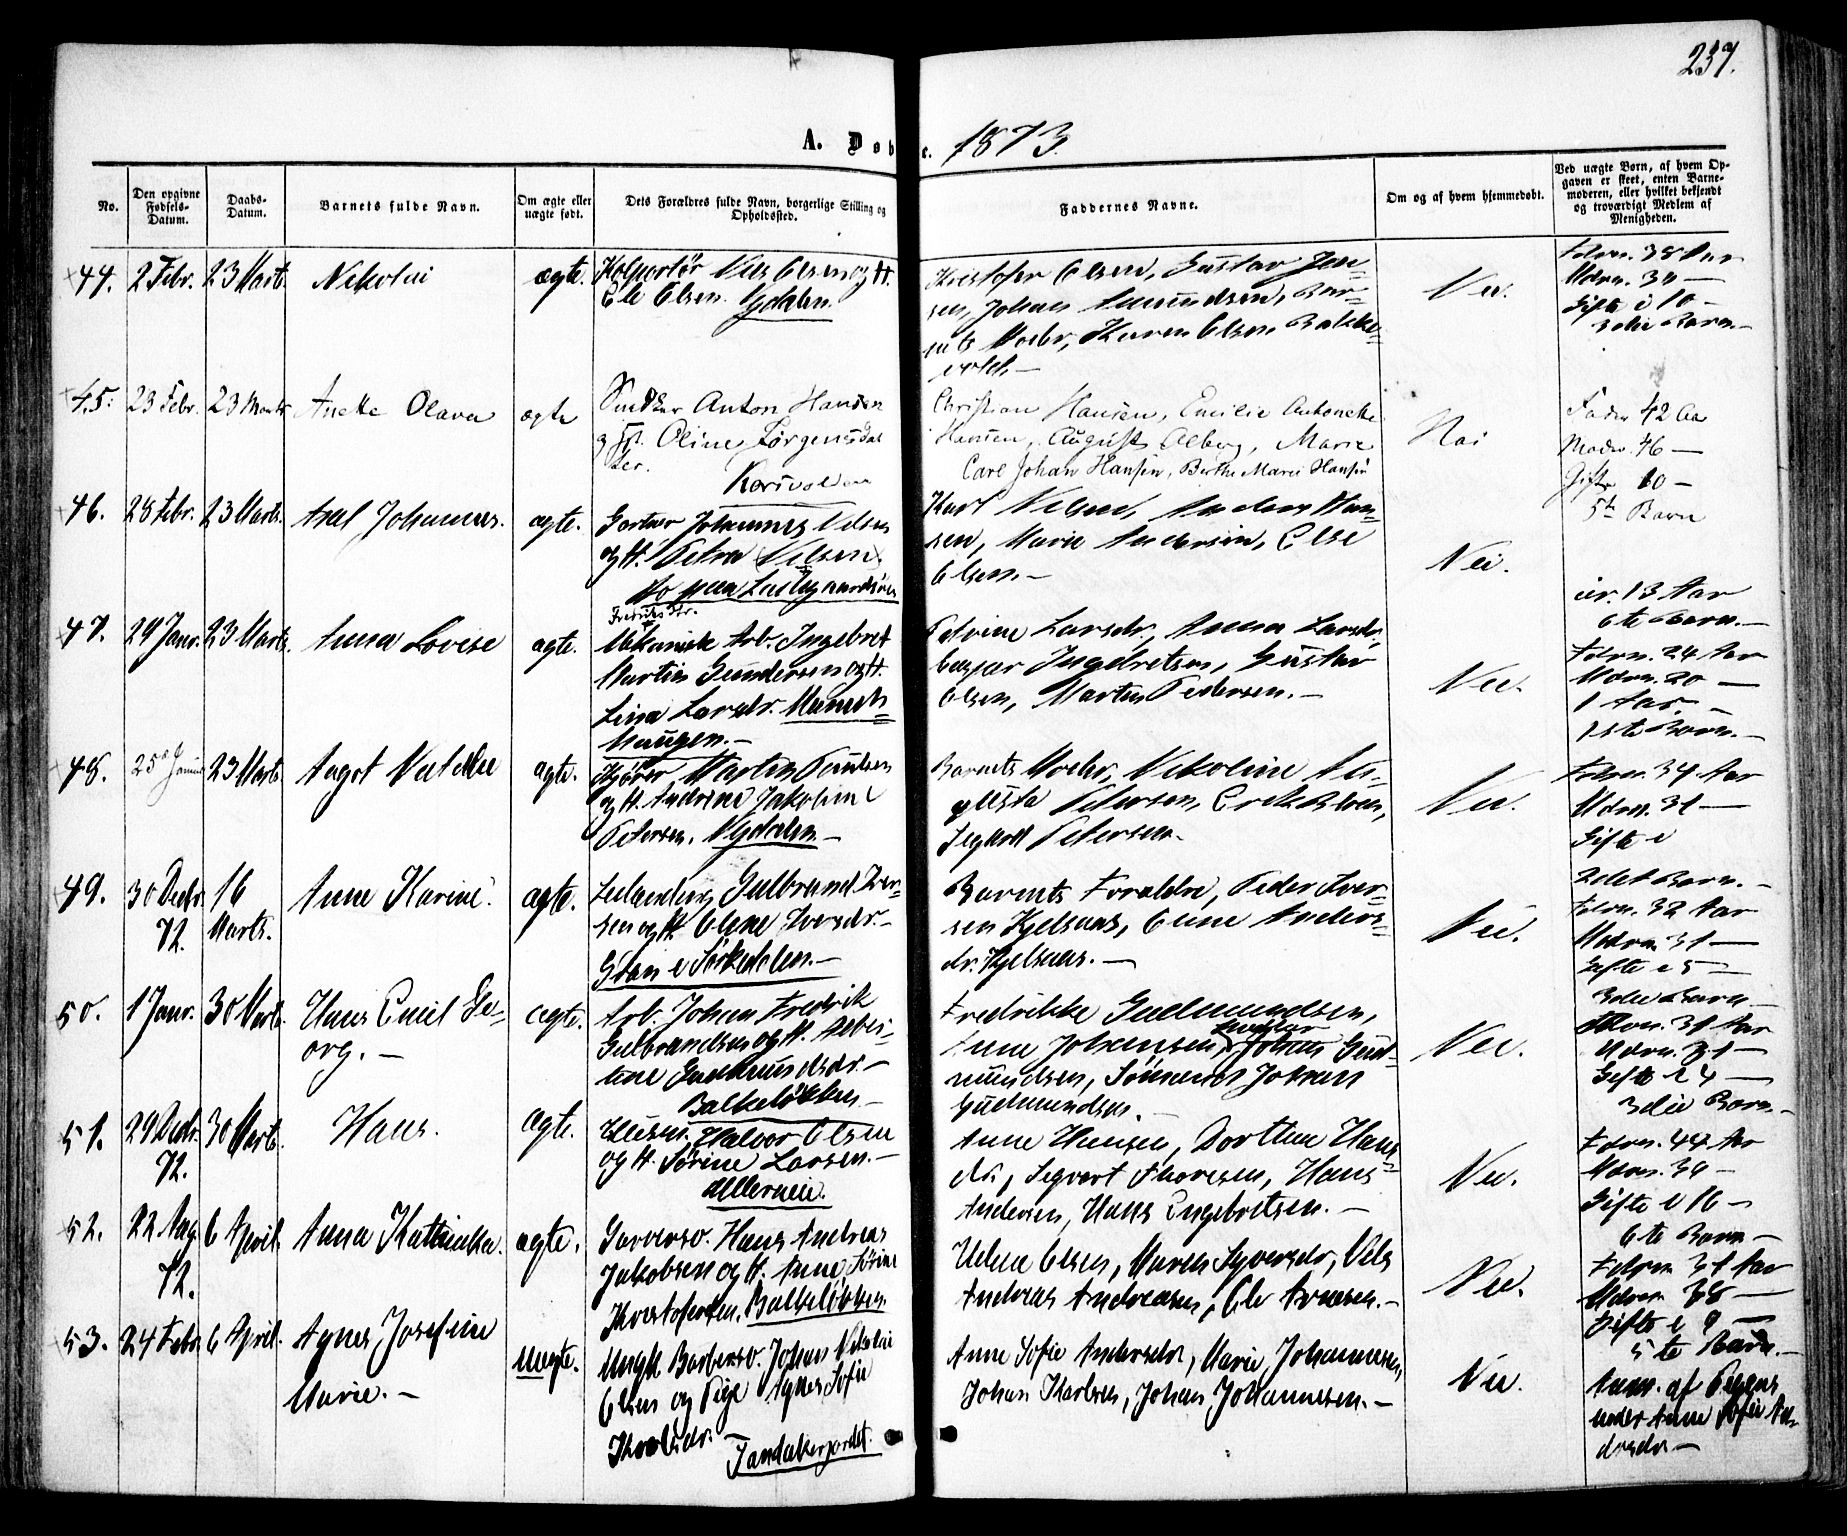 237.
A. Døbte. 1873.
No.
Den opgivne Fødsels-Datum.
Daabs-Datum.
Barnets fulde Navn.
Om ægte eller uægte født.
Dets Forældres fulde Navn, borgerlige Stilling og Opholdssted.
Faddernes Navne.
Om og af hvem hjemmedøbt.
Ved uægte Børn, af hvem Opgaven er skeet, enten Barnemoderen, eller hvilket bekjendt og troværdigt Medlem af Menigheden.
44. 2 Febr. 23 Marts. Nikolai ægte. Kolportør Nils Olsen og H.
Ole Olsen. Nydalen.
Kristofer Olsen, Gustav Jen-
sen, Johan Amundsen, Bar-
nets Moder, Karen Olsen Bakke-
vold.
Nei.
Fdrn. 38 Aar
Mdrn. 34 —
Gifte i 10 —
3die Barn.
45. 23 Febr. 23 Marts Anette Olava ægte Snedker Anton Hansen
og H. Oline Jørgensdat
ter.
Korsvolden
Christian Hansen, Emilie Antonette
Hansen, August Alberg, Marie
Carl Johan Hansen, Berthe Marie Hansen
Nei
Fader 42 Aa
Moder 46 —
Gifte 10 —
5te Barn
46. 28 Febr. 23 Marts. Axel Johannes. ægte. Gartner Johannes Nilsen
og H. Petra Nilsen
Karl Nilsen, Anders Han-
sen, Marie Andersen, Else
Olsen. —
Nei.
13 Aar
6te Barn. —
47. 29 Janr. 23 Marts. Anna Lovise ægte. Mekanisk Arb. Ingebret
Martin Gundersen og H.
Lina Larsdr.
Haugen. —
Petrine Larsdr, Anna Larsdr.
Ingebretsen, Gustav
Olsen, Martin Pedersen. —
Nei.
Fdrn. 24 Aar
Mdrn. 20 —
1 Aar. —
1ste Barn. —
48. 25 Januar 23 Marts. Aagot ægte. Kjører Martin Paulsen
og H. Andrine Jakobine
Petersen. Nydalen —
Barnets Moder, Nikoline Au-
gusta Petersen, Erik Olsen,
Petersen.
Nei.
Fdrn. 34 Aar
Mdrn. 31 —
Gifte i
2det Barn. —
49. 30 Decbr. 72. 16 Marts. Anne Karine. ægte. Leilænding Gulbrand Iver-
sen og H. Olene Iversdr. —
i Sørkedalen. —
Barnets Forældre, Peder Iver-
sen Kjelsaas, Oline Anders-
dr. Kjelsaas. —
Nei.
Fdrn. 32 Aar
Mdrn. 31 —
Gifte i 5 —
3die Barn. —
50. 1 Janr. 30 Marts. Hans Emil Ge-
org. —
ægte. Arb. Johan Fredrik
Gulbrandsen og H. Alber-
tine Gudmundsdr. —
Balkeløkken —
Fredrikke Gudmundsen,
Anne Johansen, Johan Gud-
mundsen, Sømand Johan
Gudmundsen. —
Nei.
Fdrn. 31 Aar
Mdrn. 31 —
Gifte i 4 —
3die Barn. —
51. 29 Decbr. 72. 30 Marts. Hans. ægte. Husm. Halvor Olsen
og H. Sørine Larsen. —
Ullernein.
Anne Hansen, Dorthea Hans-
dr., Segvart Thoresen, Hans
Andersen, Hans Engebretsen. —
Nei.
Fdrn. 44 Aar
Mdrn. 39 —
Gifte i 16 —
6te Barn —
52. 22 Aug. 72. 6 April. Anna Kathinka. ægte. Garversv. Hans Andreas
Jakobsen og H. Anne Sørine
Kristofersen. Balkeløkken
Helene Olsen, Maren Syversdr, Nils
Andreas Andreasen, Ole Arnesen. —
Nei.
Fdrn. 31 Aar
Mdrn. 38 —
Gifte i 9 —
5te Barn. —
53. 24 Febr. 6 April. Agnes Josefine
Marie. —
uægte. Ungk. Barbersv. Johan Nikolai
Olsen og Pige Agnes Sofie
Karlsdr.
Tandbergjordet.
Anne Sofie Andersdr, Marie Johannesen,
Johan Karlsen, Johan Johannesen. —
Nei.
Anm. af Pigens
Moder Anne Sofie An-
dersdr —